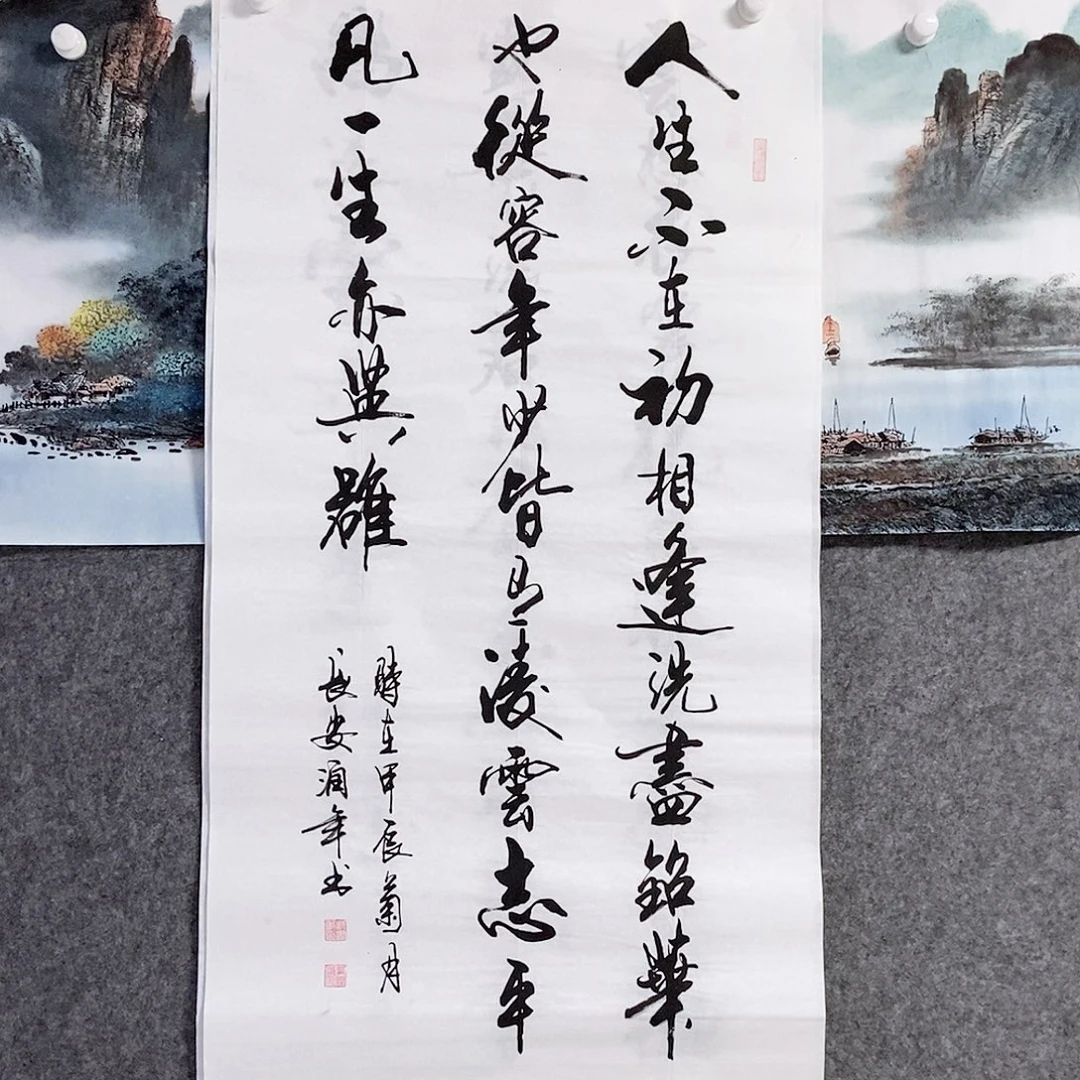 人生不在初相逢洗盡鉛華
也從容年少皆有淩雲志平
凡一生亦英雄
時在甲辰菊月
長安潤年书